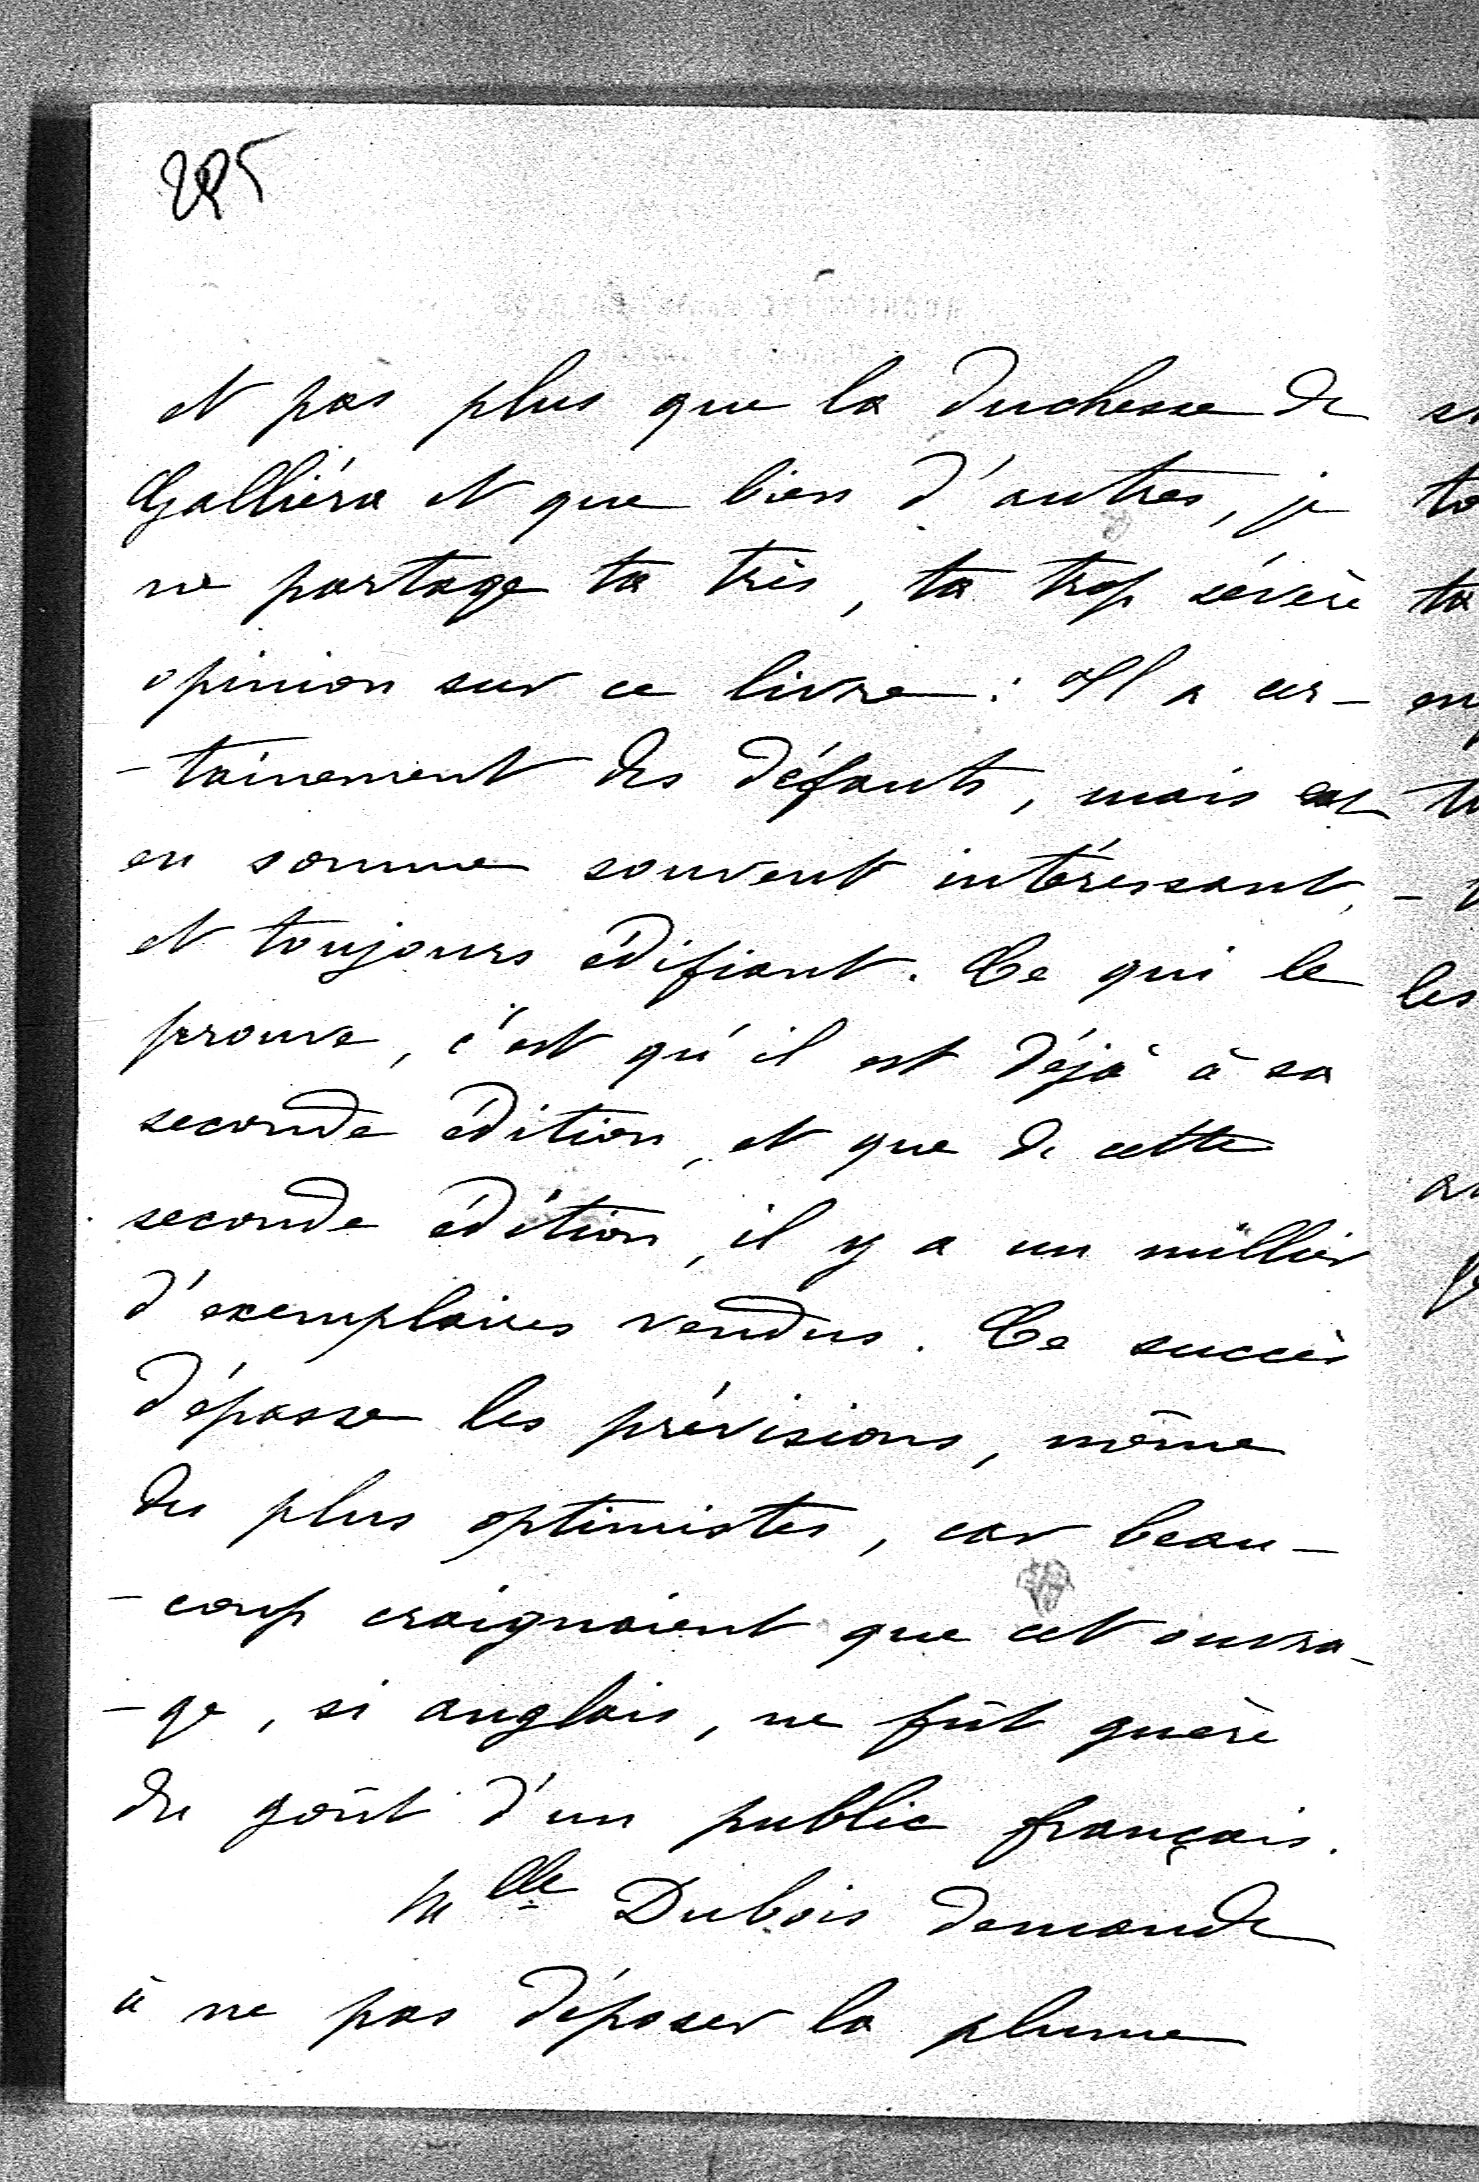 et pas plus que la duchesse de
Galliéra et que bien d'autres, je
ne partage ta très, ta trop sévère
opinion sur ce livre : Il a cer-
-tainement des défauts, mais est
en somme souvent intéressant,
et toujours édifiant. Ce qui le
prouve, c'est qu'il est déjà à sa
seconde édition, et que de cette
seconde édition, il y a un millier
d'exemplaires vendus. Ce succès
dépasse les prévisions, même
des plus optimistes, car beau-
-coup craignaient que cet ouvra-
-ge, si anglais, ne fût guère
du goût d'un public français.
Mlle Dubois demande
à ne pas déposer la plume